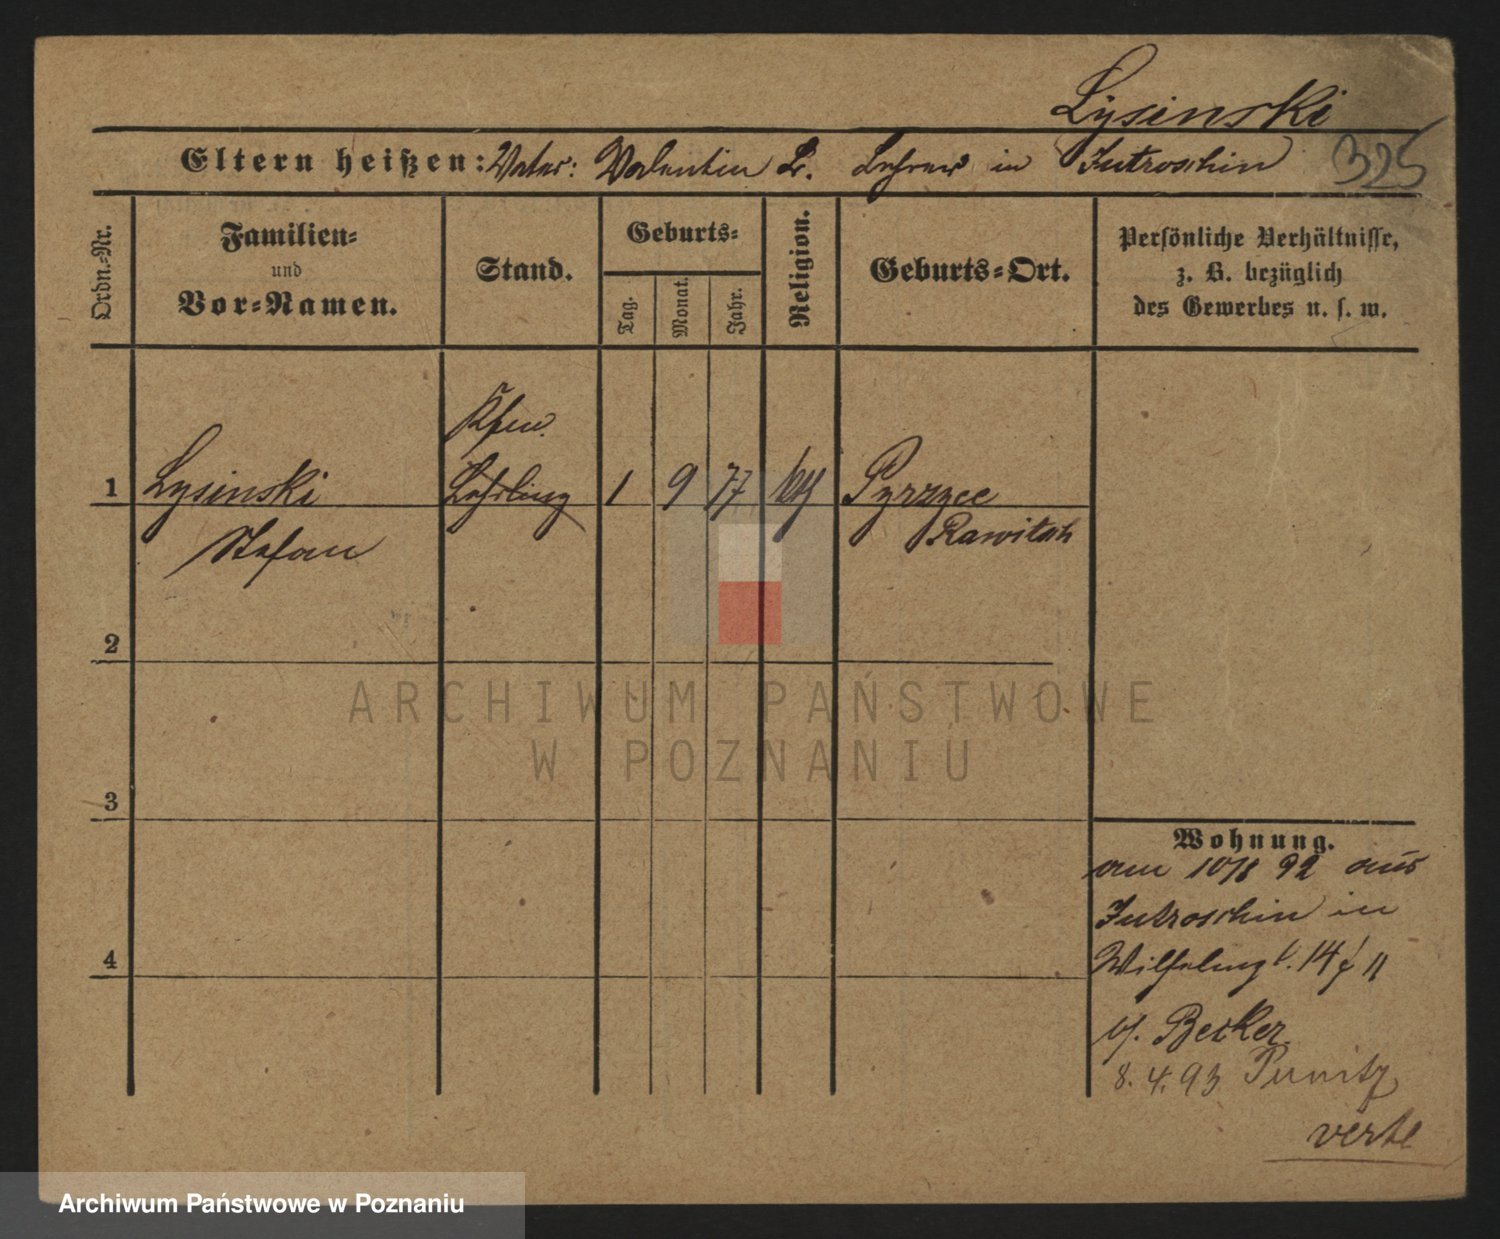 Lysinski
Eltern heißen: Vater: Valentin L. Lehrer in Jutroschin 325
Ordn.-Nr.
Familien-
und
Vor-Namen.
Stand.
Geburts-
Tag.
Monat.
Jahr.
Religion.
Geburts-Ort.
Persönliche Verhältnisse,
z. B. bezüglich
des Gewerbes u. s. w.
Kfm.
1 Lysinski Lehrling 1 9 77 kth Pyrzyce
Stefan Rawitsch
2
3
4
ARCHIWUM PAŃSTWOWE
W POZNANIU
Wohnung.
am 10/8 92 aus
Jutroschin in
14 II
b/. Becker
8. 4. 93 Punitz
verte
Archiwum Państwowe w Poznaniu